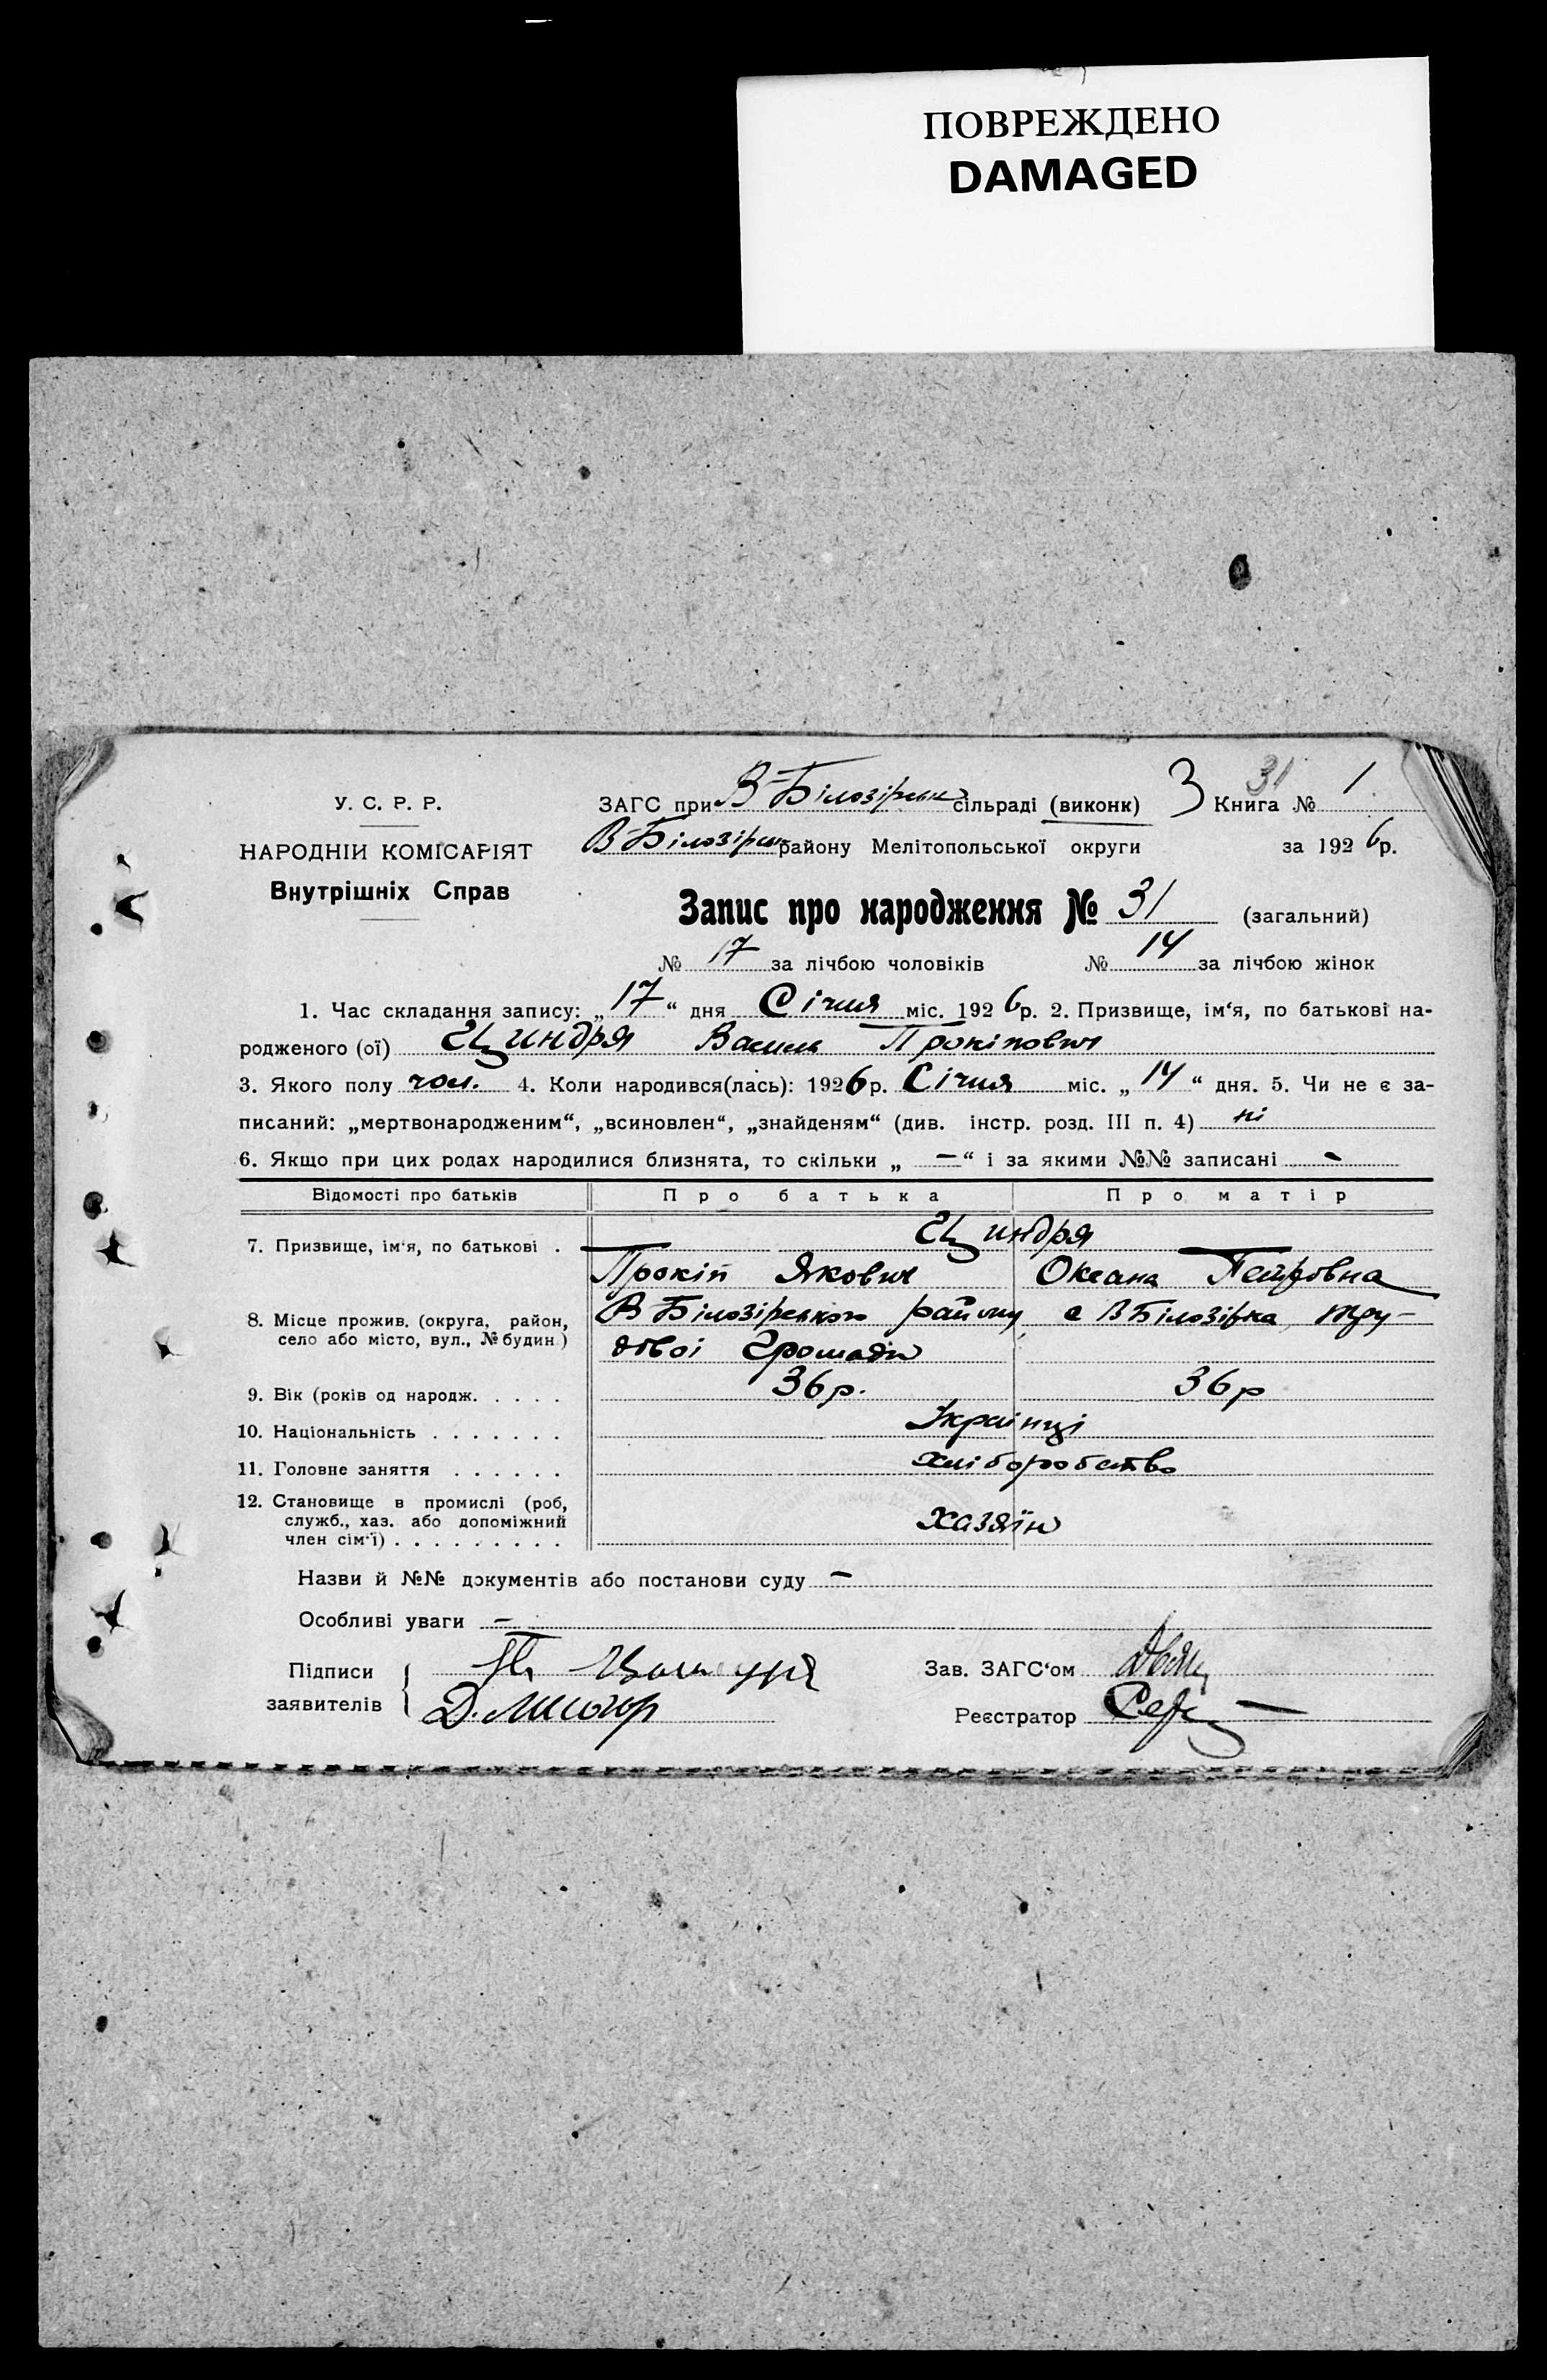 ПОВРЕЖДЕНО
DAMAGED
У. С. Р. Р.
НАРОДНІЙ КОМІСАРІЯТ
Внутрішніх Справ
ЗАГС при В-Білозірськ сільраді (виконк) З 31 Книга № 1
В-Білозірськ району Мелітопольської округи за 1926 р.
Запис про народження № 31 (загальний)
№ 17 за лічбою чоловіків № 14 за лічбою жінок
1. Час складання запису: „17“ дня Січня міс. 1926 р. 2. Призвище, ім‘я, по батькові на-
родженого (ої) Циндря Василь Прокіпович
3. Якого полу чол. 4. Коли народився(лась): 1926 р. Січня міс. „14“ дня. 5. Чи не є за-
писаний: „мертвонародженим“, „всиновлен“, „знайденям“ (див. інстр. розд. III п. 4) ні
6. Якщо при цих родах народилися близнята, то скільки „ — “ і за якими №№ записані -
Відомості про батьків Про батька Про матір
7. Призвище, ім‘я, по батькові . Циндря
Прокіп Якович Оксана Петровна
8. Місце прожив. (округа, район, село або місто, вул., № будин.) В Білозірського району с В Білозірка тру-
дової Громади
9. Вік (років од народж. . . . . 36 р. 36 р
10. Національність . . . . . . . Українці
11. Головне заняття . . . . . . хліборобство
12. Становище в промислі (роб, служб., хаз. або допоміжний член сім‘ї) . . . . . . . . . хазяїн
Назви й №№ документів або постанови суду —
Особливі уваги —
Підписи заявителів
Д. Лисогор
Зав. ЗАГС‘ом
Реєстратор